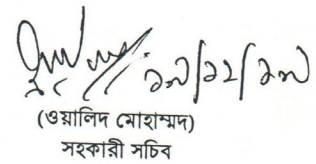 ১৭/১২/১৭
(ওয়ালিদ মোহাম্মদ)
সহকারী সচিব